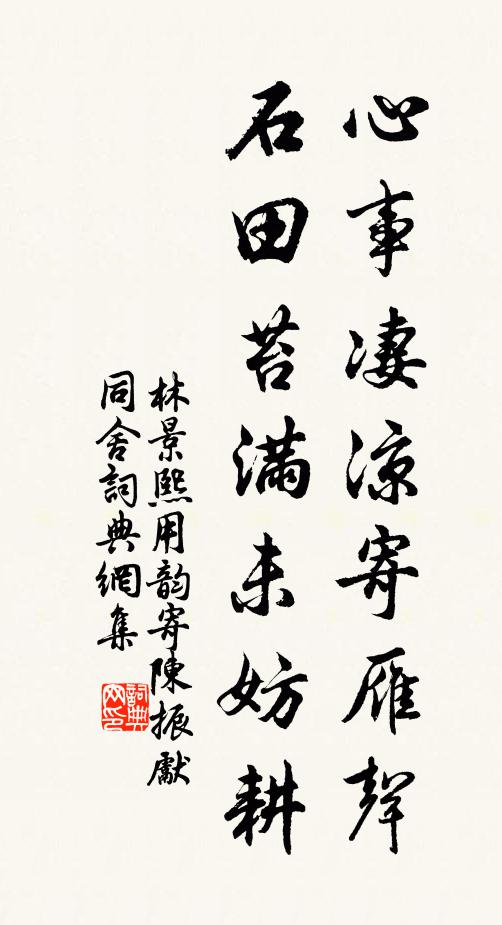 心事淒涼寄雁聲
石田苔滿未妨耕
林景熙用韵寄陳振獻
同舍詞典網集
詞典网印